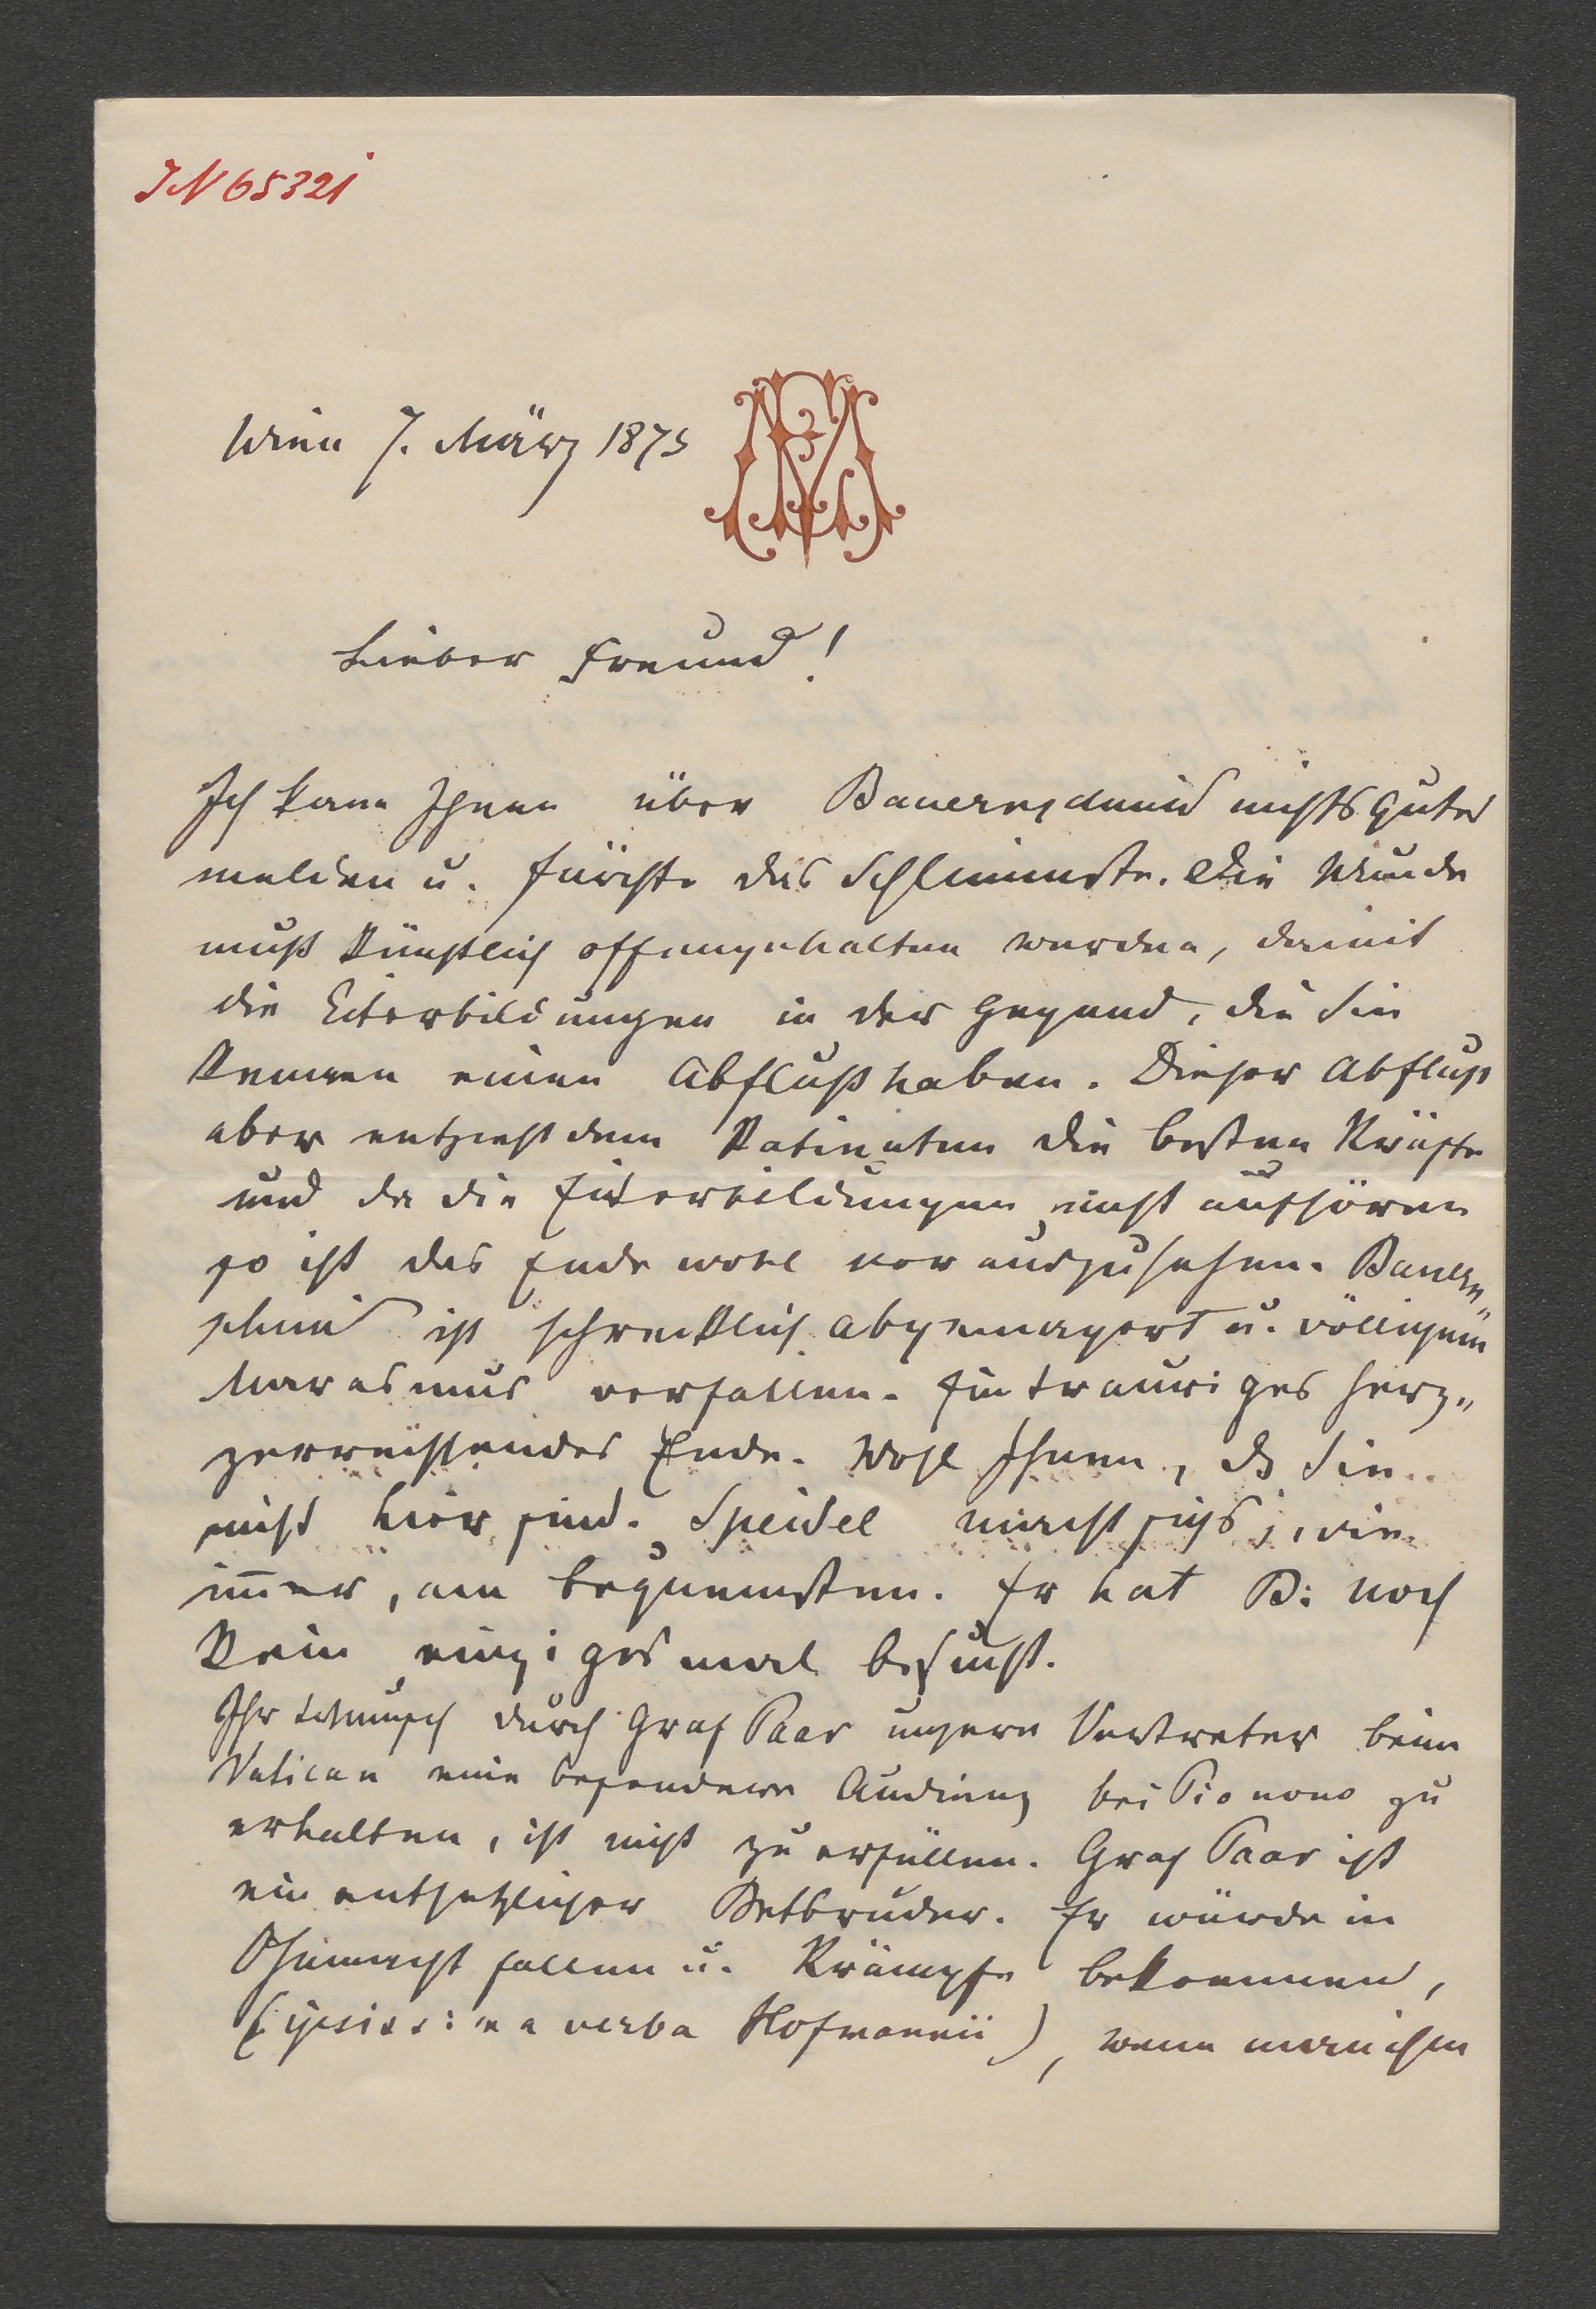 IN 65321
Wien 7. März 1875
Lieber Freund!
Ich kann Ihnen über Bauernschmid nichts Gutes
melden u. fürchte das Schlimmste. Die Wunde
muß künstlich offengehalten werden, damit
die Eiterbildungen in der Gegend, die Sie
kennen einen Abfluß haben. Dieser Abfluß
aber entzieht dem Patienten die besten Kräfte
und da die Eiterbildungen nicht aufhören
so ist das Ende wohl vorauszusehen. Bauern„
schmid ist schrecklich abgemagert u. völligem
Marasmus verfallen. Ein trauriges herz„
zerreißendes Ende. Wohl Ihnen, dß Sie
nicht hier sind. Speidel macht sichs, wie
im̅er, am bequemsten. Er hat B: noch
kein einzigesmal besucht.
Ihr Wunsch durch Graf Paar unsern Vertreter beim
Vatican eine besondere Audienz bei Pio nono zu
erhalten, ist nicht zu erfüllen. Graf Paar ist
ein entsetzlicher Betbruder. Er würde in
Ohnmacht fallen u. Krämpfe bekommen,
(ipsissima verba Hofmannii), wenn man ihm